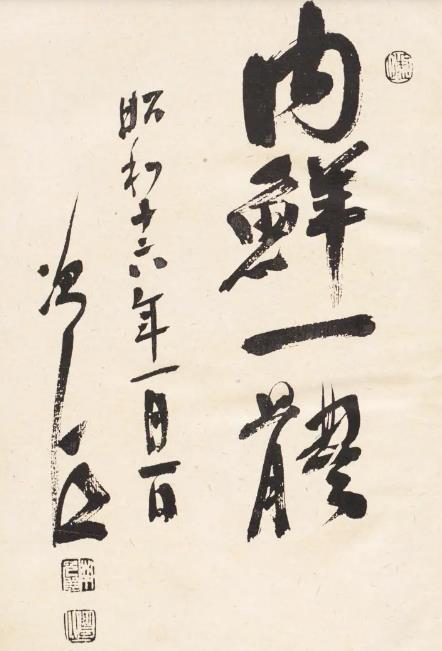 内鮮一體
昭和十六年一月一日
次郎